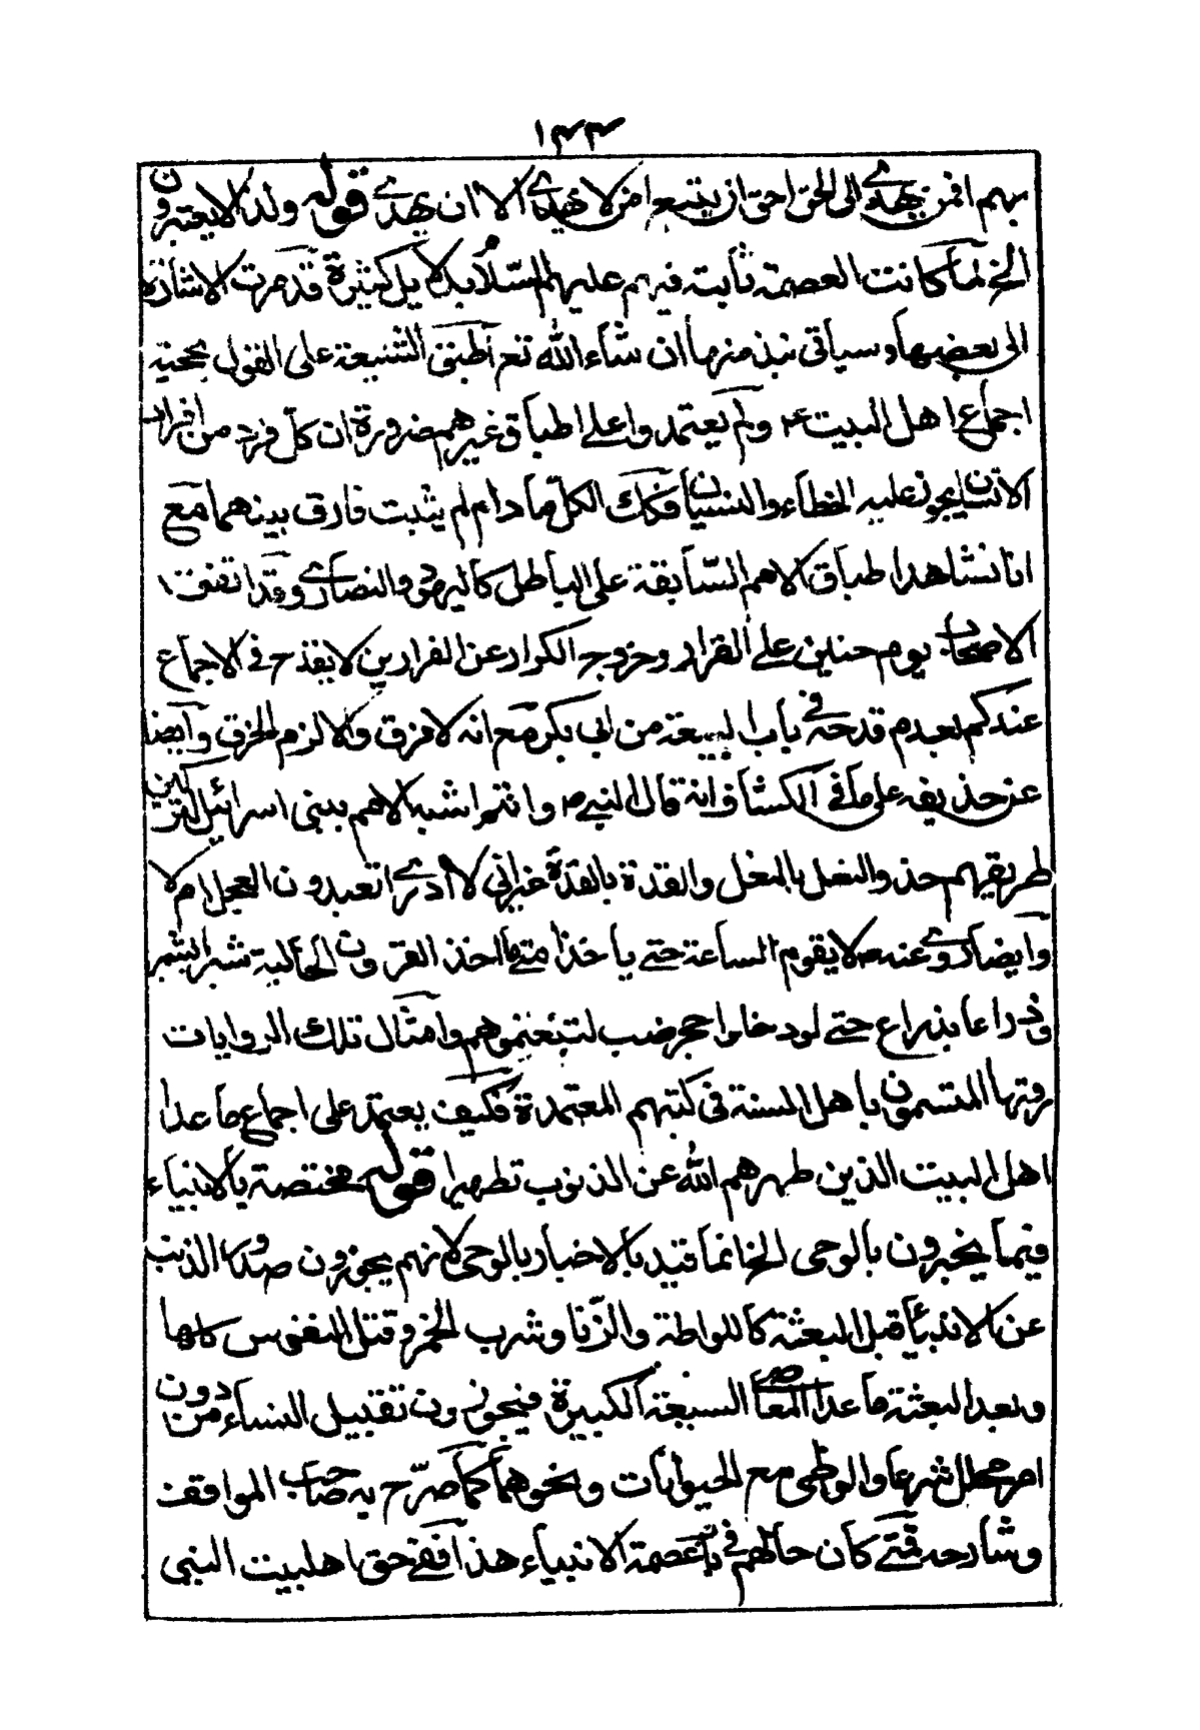 ١٣٣
بهم افمن يهدي الى الحق احق ان يتبع امن لا يهدي الا ان يهدى قوله ولذا لا يعتبرون
الخ لما كانت العصمة ثابتة فيهم عليهم السلام بدلايل كثيرة قد مرت الاشارة
الى بعضها وسياتى نبذ منها ان شاء الله تع اطبق الشيعة على القول بحجية
اجماع اهل البيت ع و لم يعتمدوا على اطباق غيرهم ضرورة ان كل فرد من افراد
الانسان يجوز عليه الخطاء والنسيان فكك الكل ما دام لم يثبت فارق بينهما مع
انا نشاهد اطباق الامم السابقة على الباطل كاليهود والنصارى وقد اتفقت
الاصحاب يوم حنين على الفرار وخروج الكرار عن الفرارين لا يقدح فى الاجماع
عندكم لعدم قدحه فى باب البيعة من ابى بكر مع انه لا فرق والا لزم الخرق وايضا
عن حذيفه على ما فى الكشاف انه قال النبي ص وانتم اشبه الامم ببنى اسرائيل لتركبن
طريقهم حذو النعل بالنعل والقذة بالقذة غير انى لا ادرى اتعبدون العجل ام لا
وايضا روى عنه ص لا يقوم الساعة حتى ياخذ امتى ما اخذ القرون الخالية شبرا بشبر
وذراعا بذراع حتى لو دخلوا حجر ضب لتبعتموهم وامثال تلك الروايات
روتها المتسمون باهل السنة فى كتبهم المعتمدة فكيف يعتمد على اجماع ما عدا
اهل البيت الذين طهرهم الله عن الذنوب تطهيرا قوله مختصة بالانبياء
فيما يخبرون بالوحى الخ انما قيد بالاخبار بالوحى لانهم يجوزون صدور الذنب
عن الانبياء قبل البعثة كاللواطة والزنا وشرب الخمر وقتل النفوس كلها
وبعد البعثة ما عدا المعاصى السبعة الكبيرة فيجوزون تقبيل النساء من دون
امر محلل شرعا والوطى مع الحيوانات ونحوهما كما صرح به صاحب المواقف
وشارحه فمتى كان حالهم فى باب عصمة الانبياء هذا ففى حق اهلبيت النبى